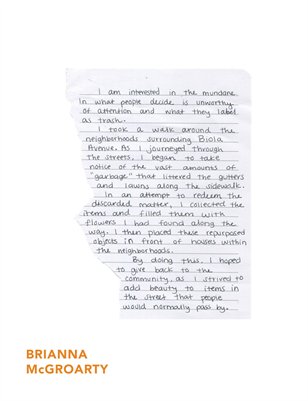 I am interested in the mundane.
In what people decide is unworthy
of attention and what they label
as trash.
I took a walk around the
neighborhoods surrounding Biola
Avenue. As I journeyed through
the streets, I began to take
notice of the vast amounts of
"garbage" that littered the gutters
and lawns along the sidewalk.
In an attempt to redeem the
discarded matter, I collected the
items and filled them with
flowers I had found along the
way. I then placed these repurposed
objects in front of houses within
the neighborhoods.
By doing this, I hoped
to give back to the
community, as I strived to
add beauty to items in
the street that people
would normally pass by.
BRIANNA
McGROARTY